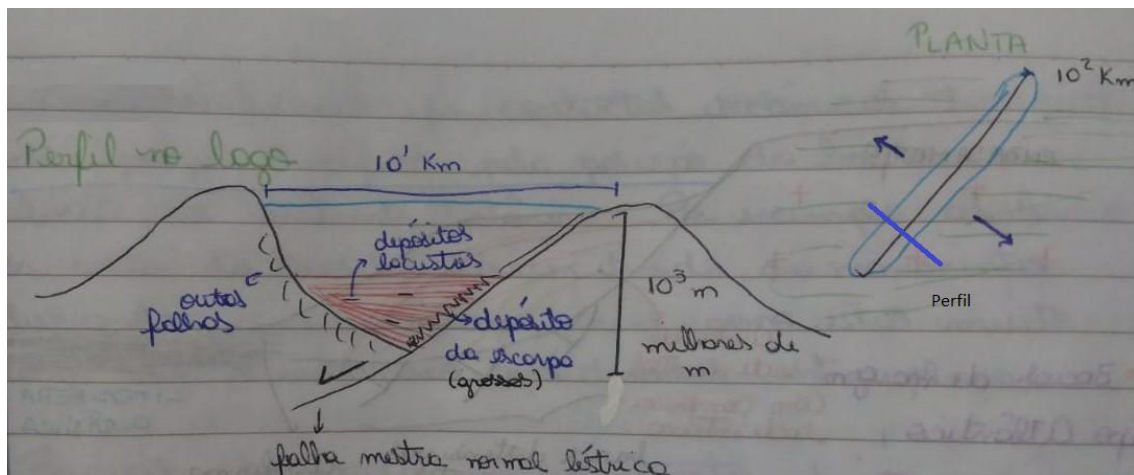 PLANTA
10² Km
Perfil no lago
10¹ Km
depósitos
lacustres
outras
falhas
depósito
da escarpa
(grossos)
10³ m
milhares de
m
Perfil
falha mestra normal lístrica